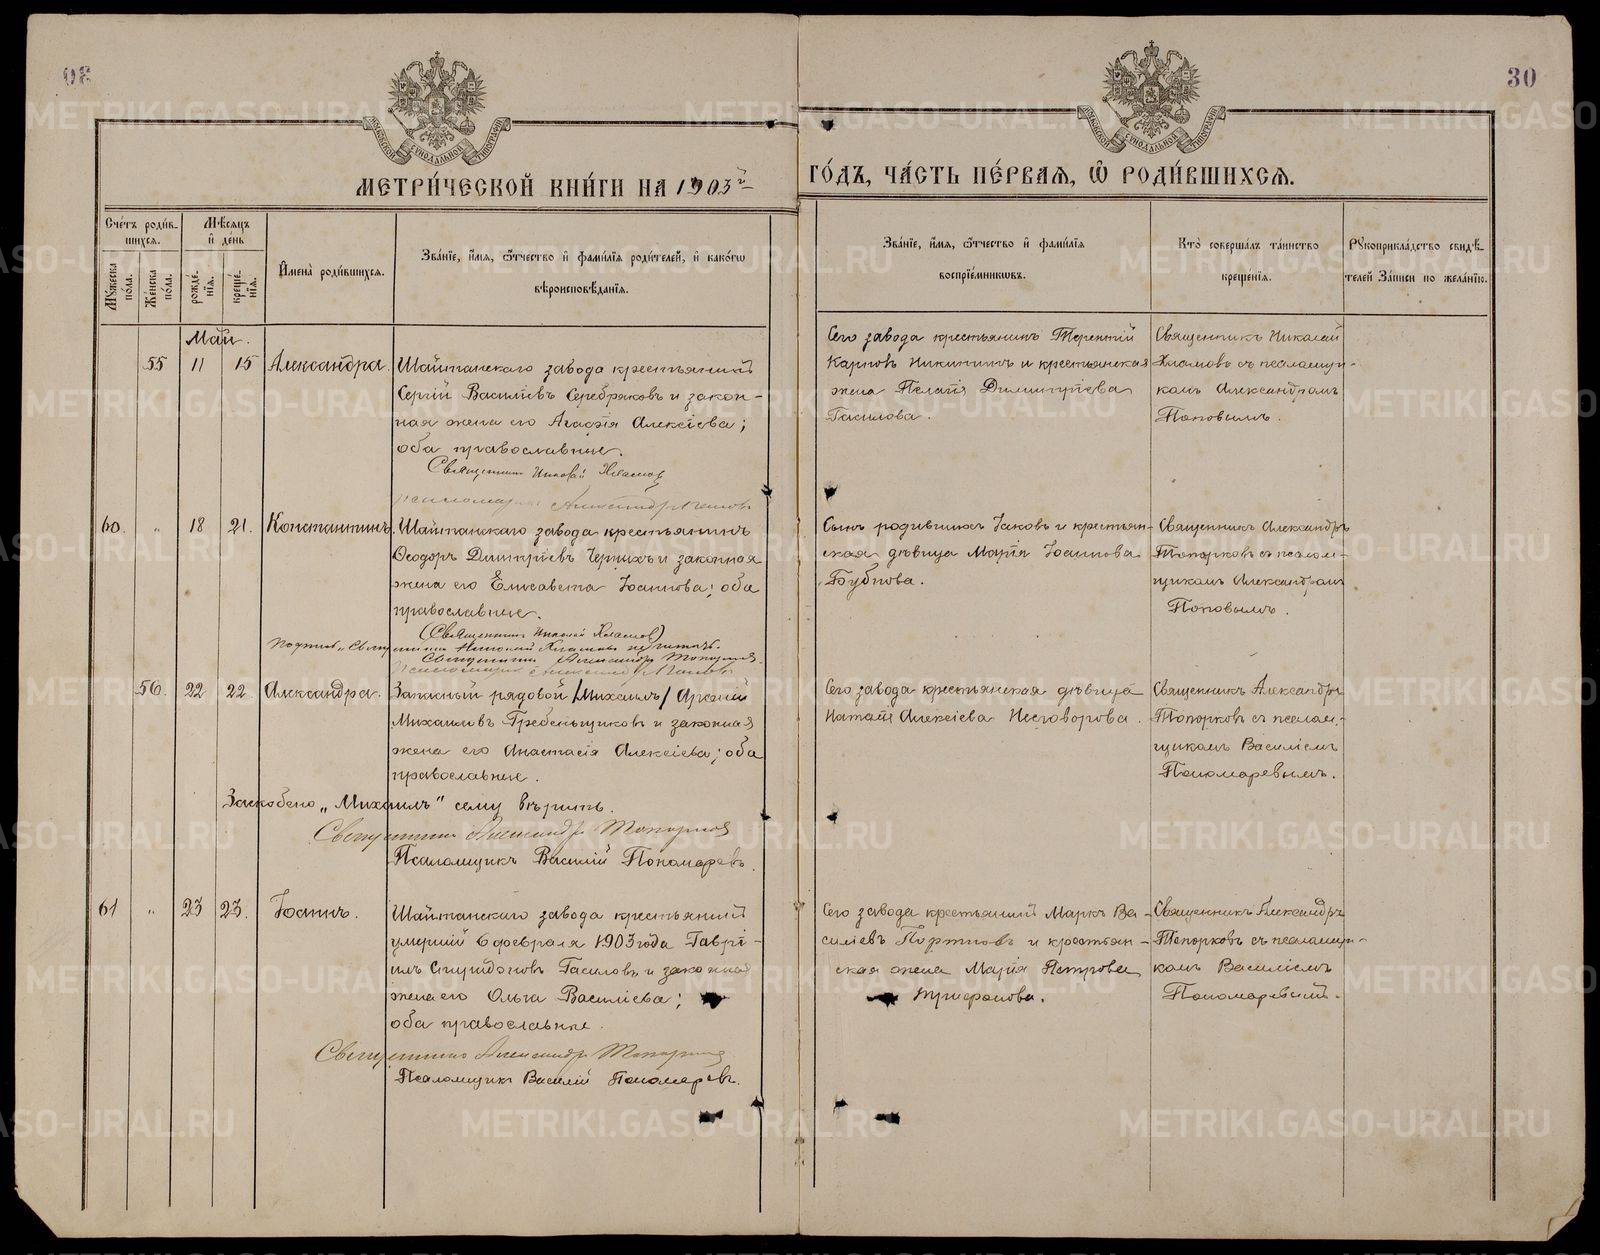 30
МЕТРИ́ЧЕСКОЙ КНИ́ГИ НА 1903 й
ГО́ДЪ, ЧА́СТЬ ПЕ́РВАЯ, Ѿ РОДИ́ВШИХСЯ.
МОСКОВСКОЙ СѴНОДАЛЬНОЙ ТИПОГРАФІИ
МОСКОВСКОЙ СѴНОДАЛЬНОЙ ТИПОГРАФІИ
Сче́тъ роди́в-
шихся.
Му́жеска по́ла.
Же́нска по́ла.
Мѣ́сяцъ
и́ де́нь
рожде́-
нїя.
креще́-
нїя.
И҆мена̀ роди́вшихся.
Зва́нїе, и҆́мя, ѻ҆́тчество и҆ фами́лїя роди́телей, и҆ како́гѡ
вѣроисповѣ́данїя.
Зва́нїе, и҆́мя, ѻ҆́тчество и҆ фами́лїя
воспрїе́мниковъ.
Кто̀ соверша́лъ та́инство
креще́нїя.
Рꙋкоприкла́дство свидѣ́-
телей за́писи по жела́нїю.
Май.
55 11 15 Александра.
Шайтанскаго завода крестьянинъ
Сергій Василіевъ Серебряковъ и закон-
ная жена его Агафія Алексіева;
оба православные.
Священникъ Николай Хламов
Псаломщик Александръ Попов
Сего завода крестьянинъ Терентій
Карповъ Никитинъ и крестьянская
жена Пелагія Димитріева
Гасилова.
Священникъ Николай
Хламовъ съ псаломщи-
комъ Александромъ
Поповымъ.
60. „ 18 21. Константинъ.
Шайтанскаго завода крестьянинъ
Ѳеодоръ Димитріевъ Черныхъ и законная
жена его Елисавета Іоаннова; оба
православные.
(Священникъ Николай Хламов)
Подпись „Священника Николай Хламовъ не читать.
Священникъ Александр Топорков.
Псаломщик Александр Попов
Сынъ родившихъ Іаковъ и крестьян-
ская дѣвица Марія Іоаннова
Бубнова.
Священникъ Александръ
Топорковъ съ псалом-
щикомъ Александромъ
Поповымъ.
56. 22 22 Александра.
Запасный рядовой /Михаилъ/ Арсеній
Михаиловъ Гребеньщиковъ и законная
жена его Анастасія Алексіева; оба
православные.
Заскобено „Михаилъ" сему вѣрить.
Священникъ Александр Топорков
Псаломщикъ Василій Пономаревъ.
Сего завода крестьянская дѣвица
Наталія Алексіева Несговорова.
Священникъ Александръ
Топорковъ съ псалом-
щикомъ Василіемъ
Пономаревымъ.
61 „ 23 23. Іоаннъ.
Шайтанскаго завода крестьянинъ
умершій 6 февраля 1903 года Гаврі-
илъ Спиридоновъ Гасиловъ и законная
жена его Ольга Василіева;
оба православные.
Священникъ Александр Топорков
Псаломщикъ Василій Пономаревъ.
Сего завода крестьянинъ Маркъ Ва-
силіевъ Портновъ и крестьян-
ская жена Марія Петрова
Трифонова.
Священникъ Александръ
Топорковъ съ псаломщи-
комъ Василіемъ
Пономаревымъ.
METRIKI.GASO-URAL.RU